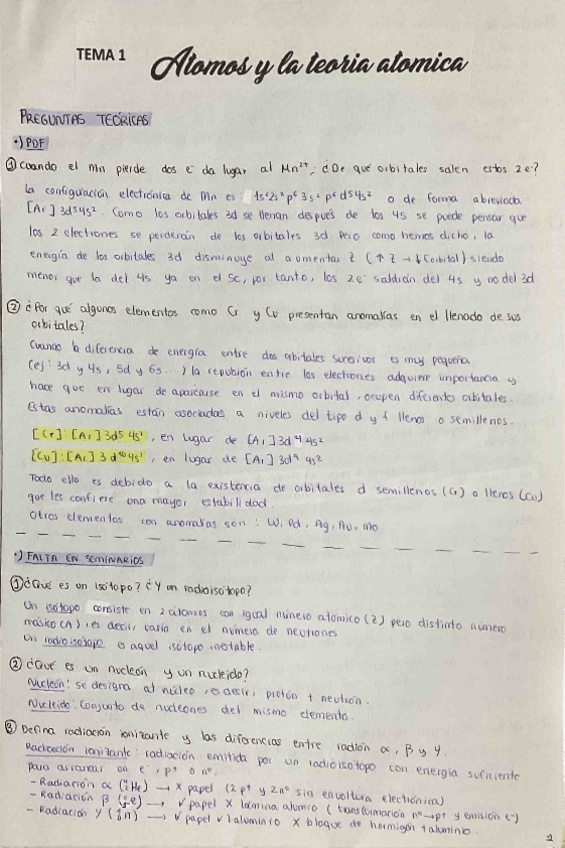 TEMA 1 Atomos y la teoria atomica
PREGUNTAS TEÓRICAS
·) PDF
① Cuando el Mn pierde dos e⁻ da lugar al Mn²⁺, ¿De qué orbitales salen estos 2 e⁻?
La configuración electrónica de Mn es 1s²2s²p⁶3s²p⁶d⁵4s² o de forma abreviada
[Ar] 3d⁵4s². Como los orbitales 3d se llenan después de los 4s se puede pensar que
los 2 electrones se perderán de los orbitales 3d. Pero como hemos dicho, la
energía de los orbitales 3d disminuye al aumentar Z (↑ Z → ↓ Eorbital) siendo
menor que la del 4s ya en el Sc, por tanto, los 2e⁻ saldrán del 4s y no del 3d
② ¿Por qué algunos elementos como Cr y Cu presentan anomalías en el llenado de sus
orbitales?
Cuando la diferencia de energía entre dos orbitales sucesivos es muy pequeña
(ej: 3d y 4s, 5d y 6s...) la repulsión entre los electrones adquiere importancia y
hace que en lugar de aparearse en el mismo orbital, ocupen diferentes orbitales.
Estas anomalías están asociadas a niveles del tipo d y f llenos o semillenos.
[Cr]: [Ar] 3d⁵ 4s¹, en lugar de [Ar] 3d⁴ 4s²
[Cu]: [Ar] 3d¹⁰ 4s¹, en lugar de [Ar] 3d⁹ 4s²
Todo ello es debido a la existencia de orbitales d semillenos (Cr) o llenos (Cu)
que les confiere una mayor estabilidad.
Otros elementos con anomalías son: W, Pd, Ag, Au, Mo
·) FALTA EN SEMINARIOS
① ¿Qué es un isótopo? ¿Y un radioisótopo?
Un isótopo consiste en 2 átomos con igual número atómico (Z) pero distinto número
másico (A), es decir, varía en el número de neutrones
Un radioisótopo es aquel isótopo inestable.
② ¿Qué es un nucleón y un nucleido?
Nucleón: se designa al núcleo, es decir, protón + neutrón.
Nucleido: Conjunto de nucleones del mismo elemento.
③ Defina radiación ionizante y las diferencias entre radión α, β y γ.
Radiación ionizante: radiación emitida por un radioisótopo con energía suficiente
para arrancar un e⁻, p⁺ o n⁰.
- Radiación α (He) → X papel (2 p⁺ y 2n⁰ sin envoltura electrónica)
- Radiación β (e) → ✓ papel X lámina aluminio (transformación n⁰→p⁺ y emisión e⁻)
- Radiación γ (n) → ✓ papel ✓ aluminio X bloque de hormigón + aluminio.